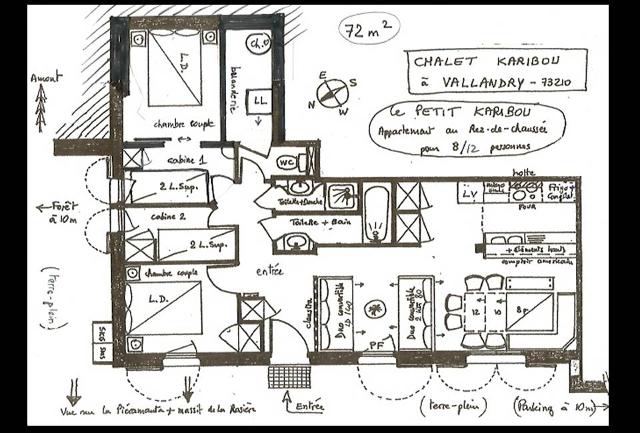 72 m²
CHALET KARIBOU
à VALLANDRY - 73210
Le PETIT KARIBOU
Appartement au Rez-de-chaussée
pour 8/12 personnes
Amont
E
S
N
W
L.D.
chambre couple
buanderie
Ch.O
LL
WC
cabine 1
2 L.Sup.
Toilette+Douche
Toilette + Bain
cabine 2
2 L.Sup.
Forêt
à 10m
(terre-plein)
chambre couple
L.D.
entrée
hotte
LV
Frigo+
Congélat
FOUR
+ éléments hauts
comptoir américain
12
10
8p.
Duo convertible
LD 140
Duo convertible
PF
SKIS
Vue sur la Pierramenta + massif de la Rosière
Entrée
(terre-plein)
(Parking à 10m)